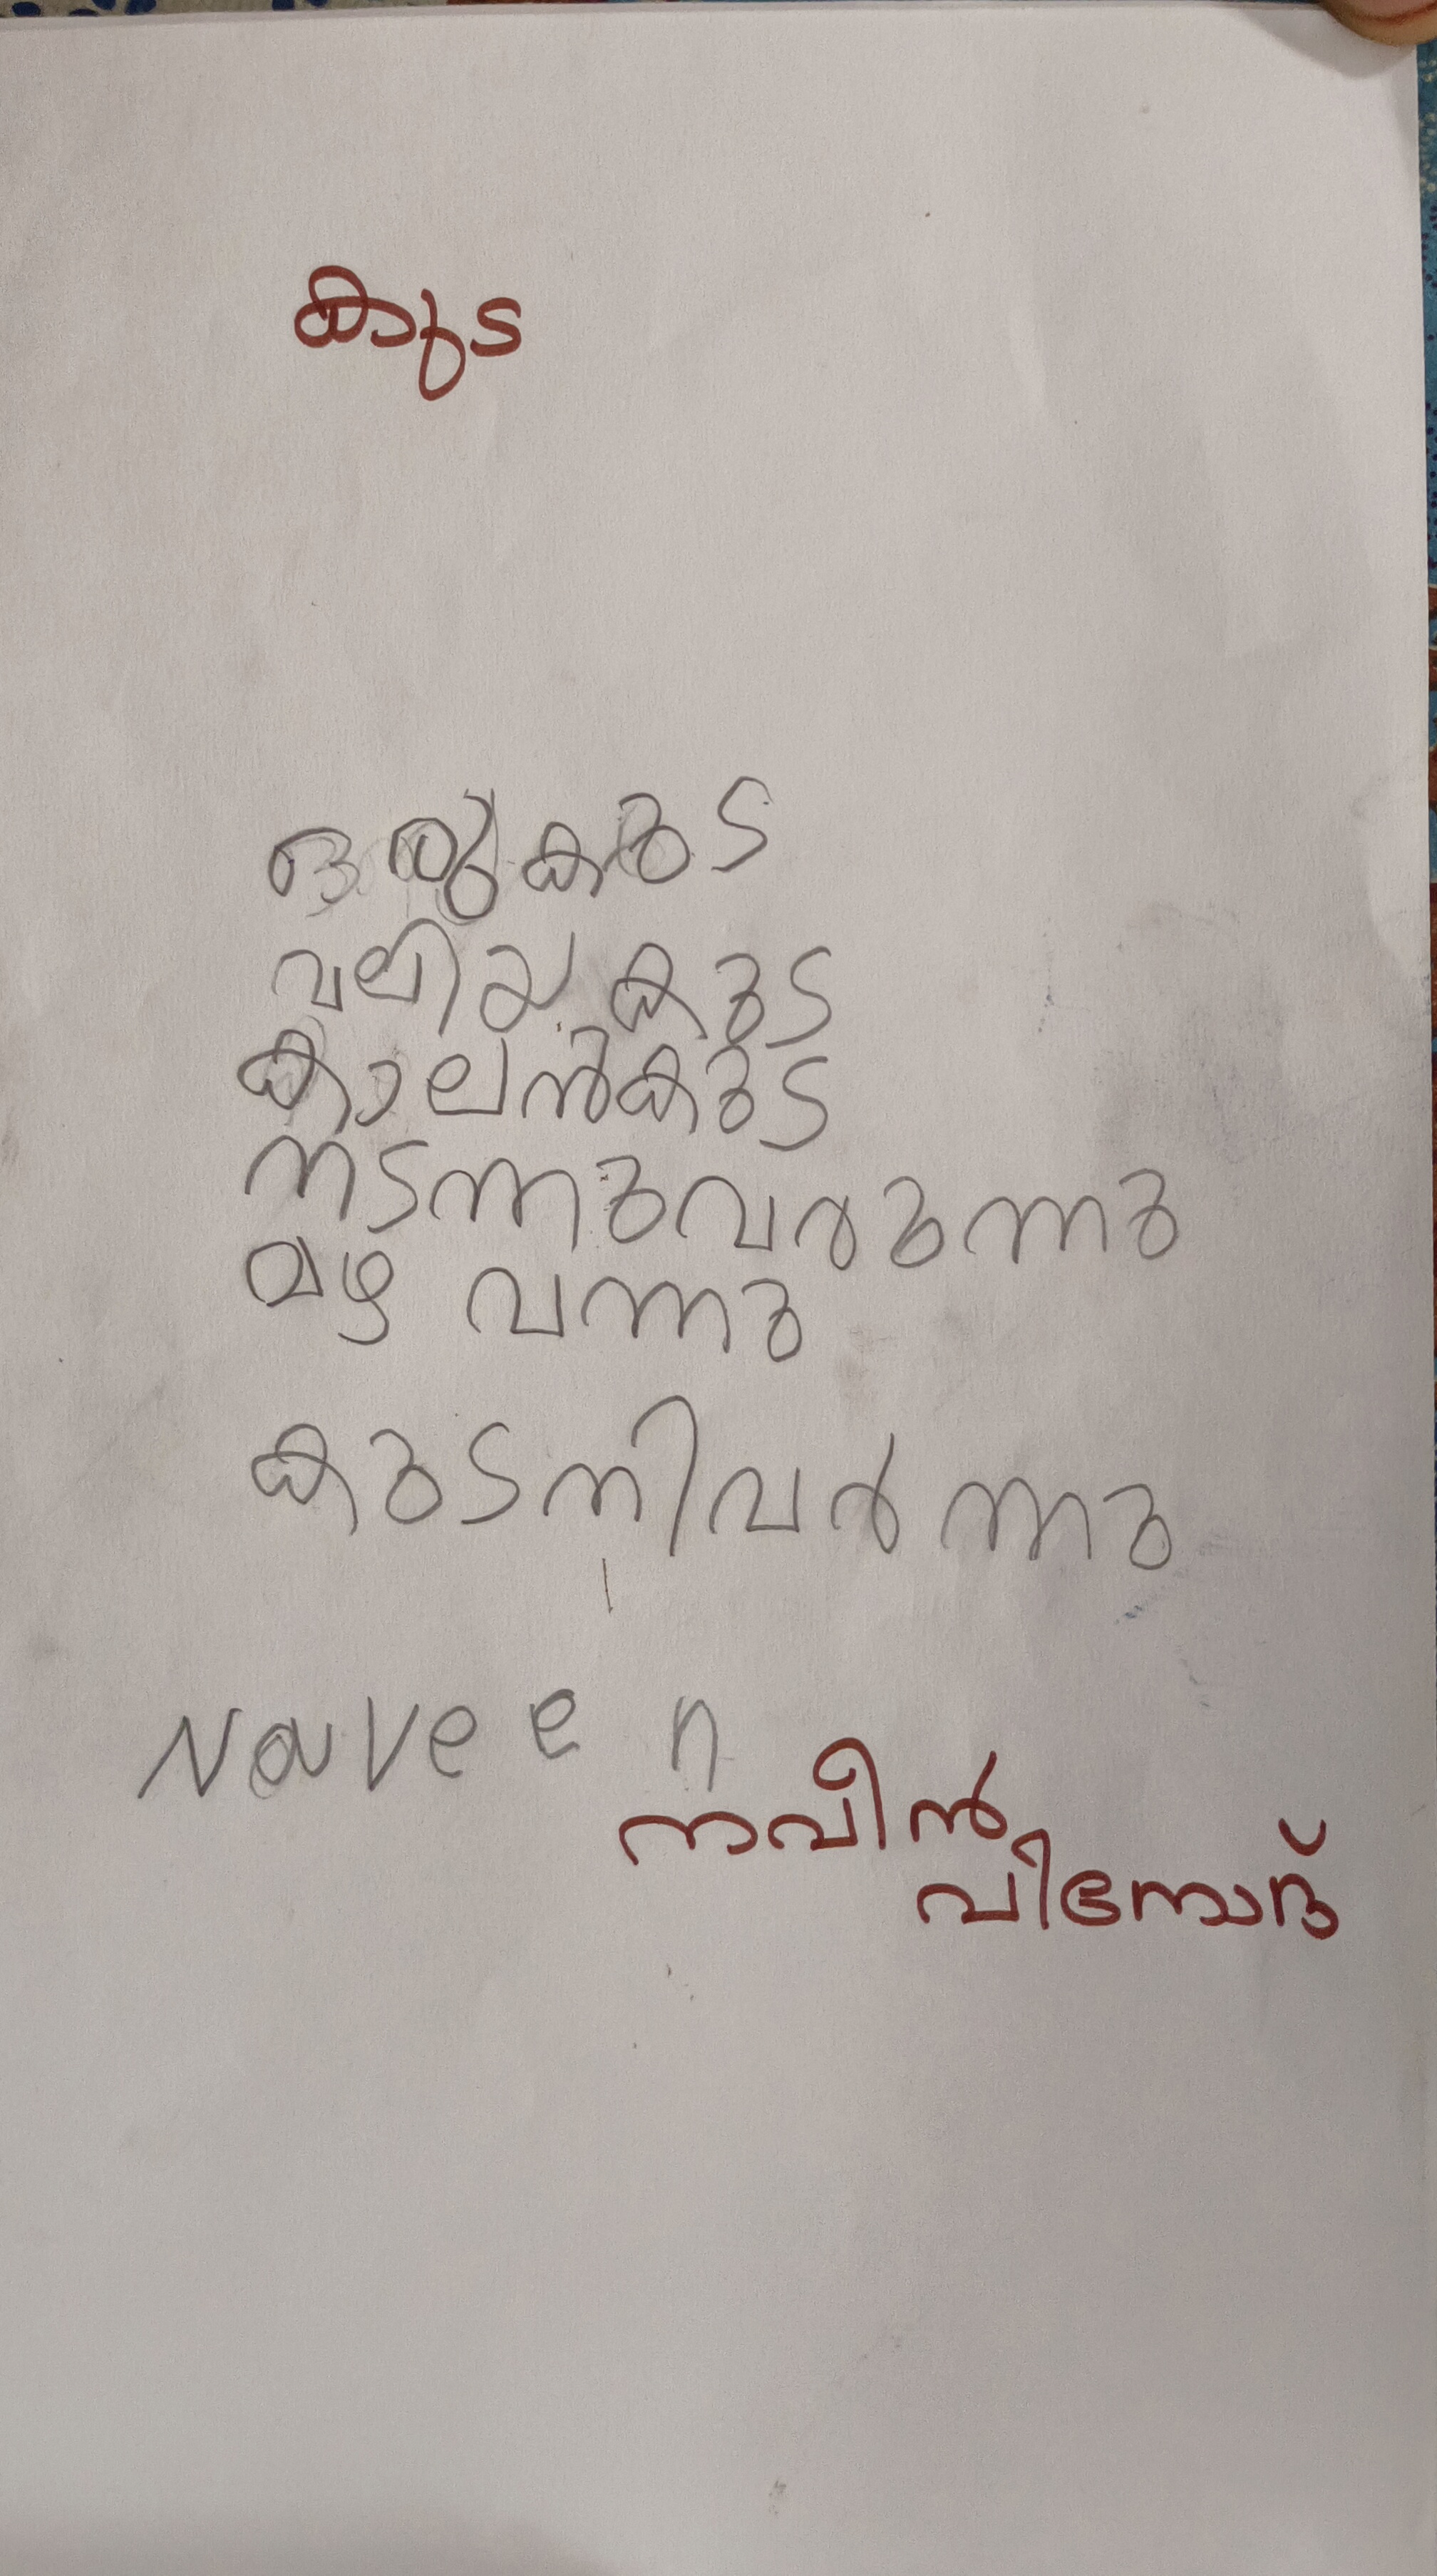 കുട
ഒരു കുട
വലിയ കുട
കാലൻകുട
നടന്നുവരുന്നു
മഴ വന്നു
കുടനിവർന്നു
Naveen
നവീൻ
വിനോദ്